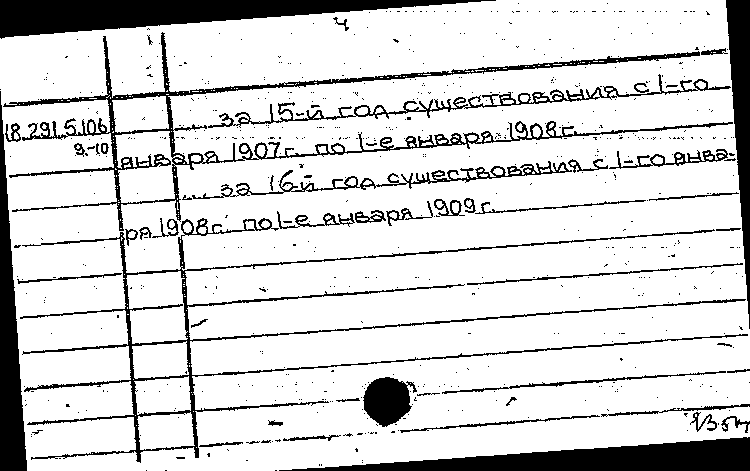 4
18.291.5.106 ... за 15-й год существования с 1-го
9.-10 января 1907г. по 1-е января 1908г.
... за 16-й год существования с 1-го янва-
ря 1908г. по 1-е января 1909г.